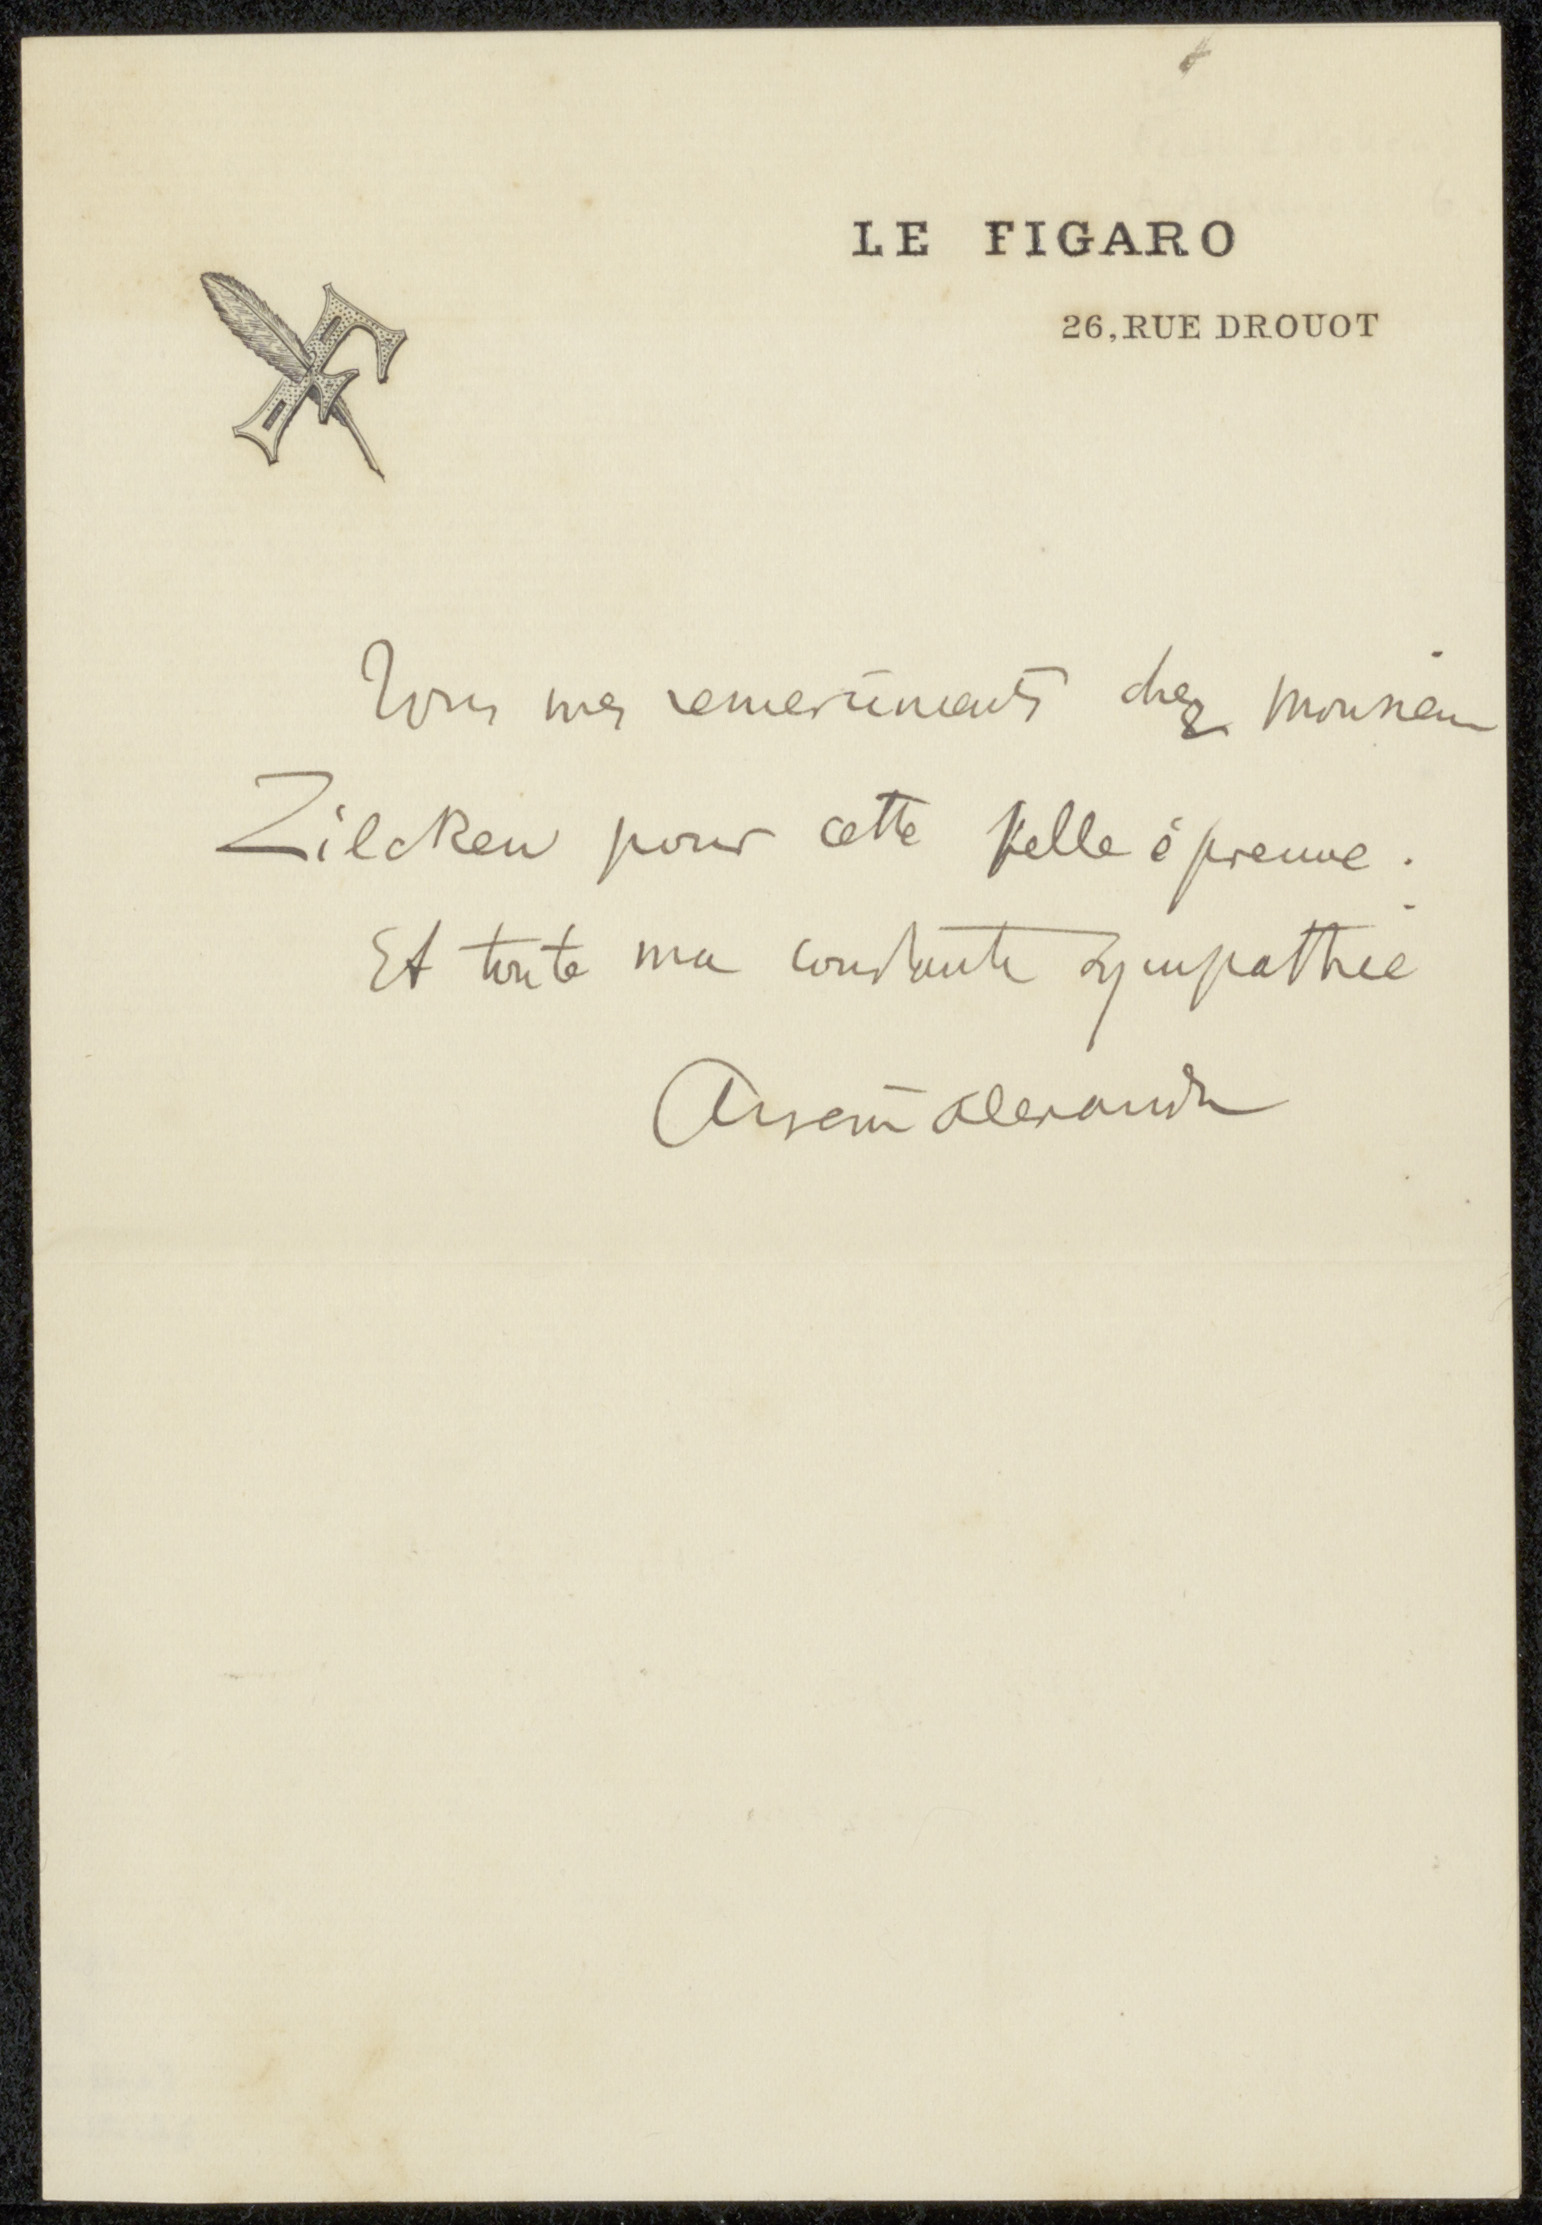 LE FIGARO
26, RUE DROUOT
Tous mes remerciments cher Monsieur
Zilcken pour cette belle épreuve.
Et toute ma constante sympathie
Arsène Alexandre